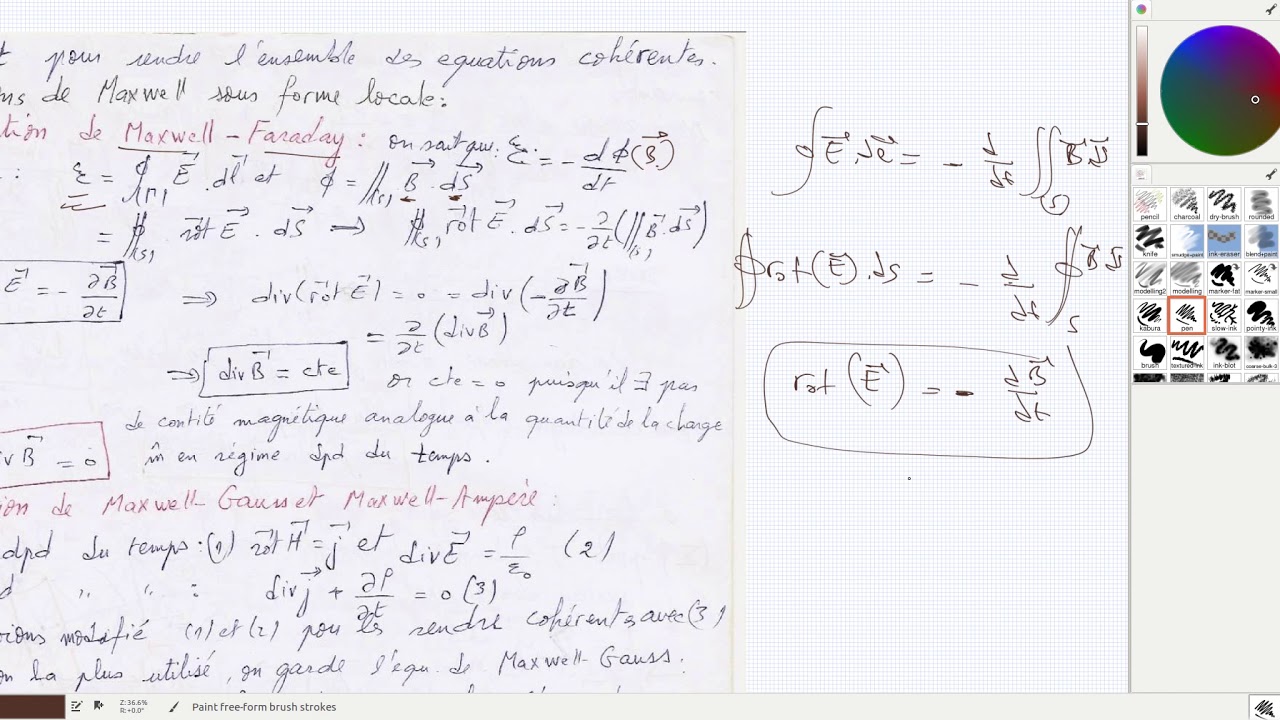 pour rendre l'ensemble des equations cohérentes.
ns de Maxwell sous forme locale:
tion de Maxwell-Faraday: on sait que: ℰ = - dϕ(B⃗)/dt
: ℰ = ∮(Γ) E⃗.dl⃗ et ϕ = ∬(S) B⃗.dS⃗
= ∯(S) rot⃗ E⃗.dS⃗ → ∯(S) rot⃗ E⃗.dS⃗ = -∂/∂t(∬(S) B⃗.dS⃗)
E⃗ = - ∂B⃗/∂t ⇒ div(rot⃗ E⃗) = 0 = div(-∂B⃗/∂t)
= ∂/∂t (div B⃗)
⇒ div B⃗ = cte or cte = 0 puisqu'il ∃ pas
de contité magnétique analogue à la quantité de la charge
iv B⃗ = 0 m̂ en régime dpd du temps.
ion de Maxwell-Gauss et Maxwell-Ampère:
dpd du temps: (1) rot⃗ H⃗ = j⃗ et div E⃗ = ρ/ε₀ (2)
d " " : div j⃗ + ∂ρ/∂t = 0 (3)
modifié (1) et (2) pou les rendre cohérentes avec (3)
on la plus utilisé, on garde l'équ. de Maxwell-Gauss.
∮ E⃗.dl⃗ = - d/dt ∬(S) B⃗.dS⃗
∮ rot(E⃗).ds = - d/dt ∮S B⃗ dS
rot(E⃗) = - dB⃗/dt
pencil charcoal dry-brush rounded
knife smudge+paint ink-eraser blend+paint
modelling2 modelling marker-fat marker-small
kabura pen slow-ink pointy-ink
brush textured-ink ink-blot coarse-bulk-0
Z:36.6%
R:+0.0°
Paint free-form brush strokes